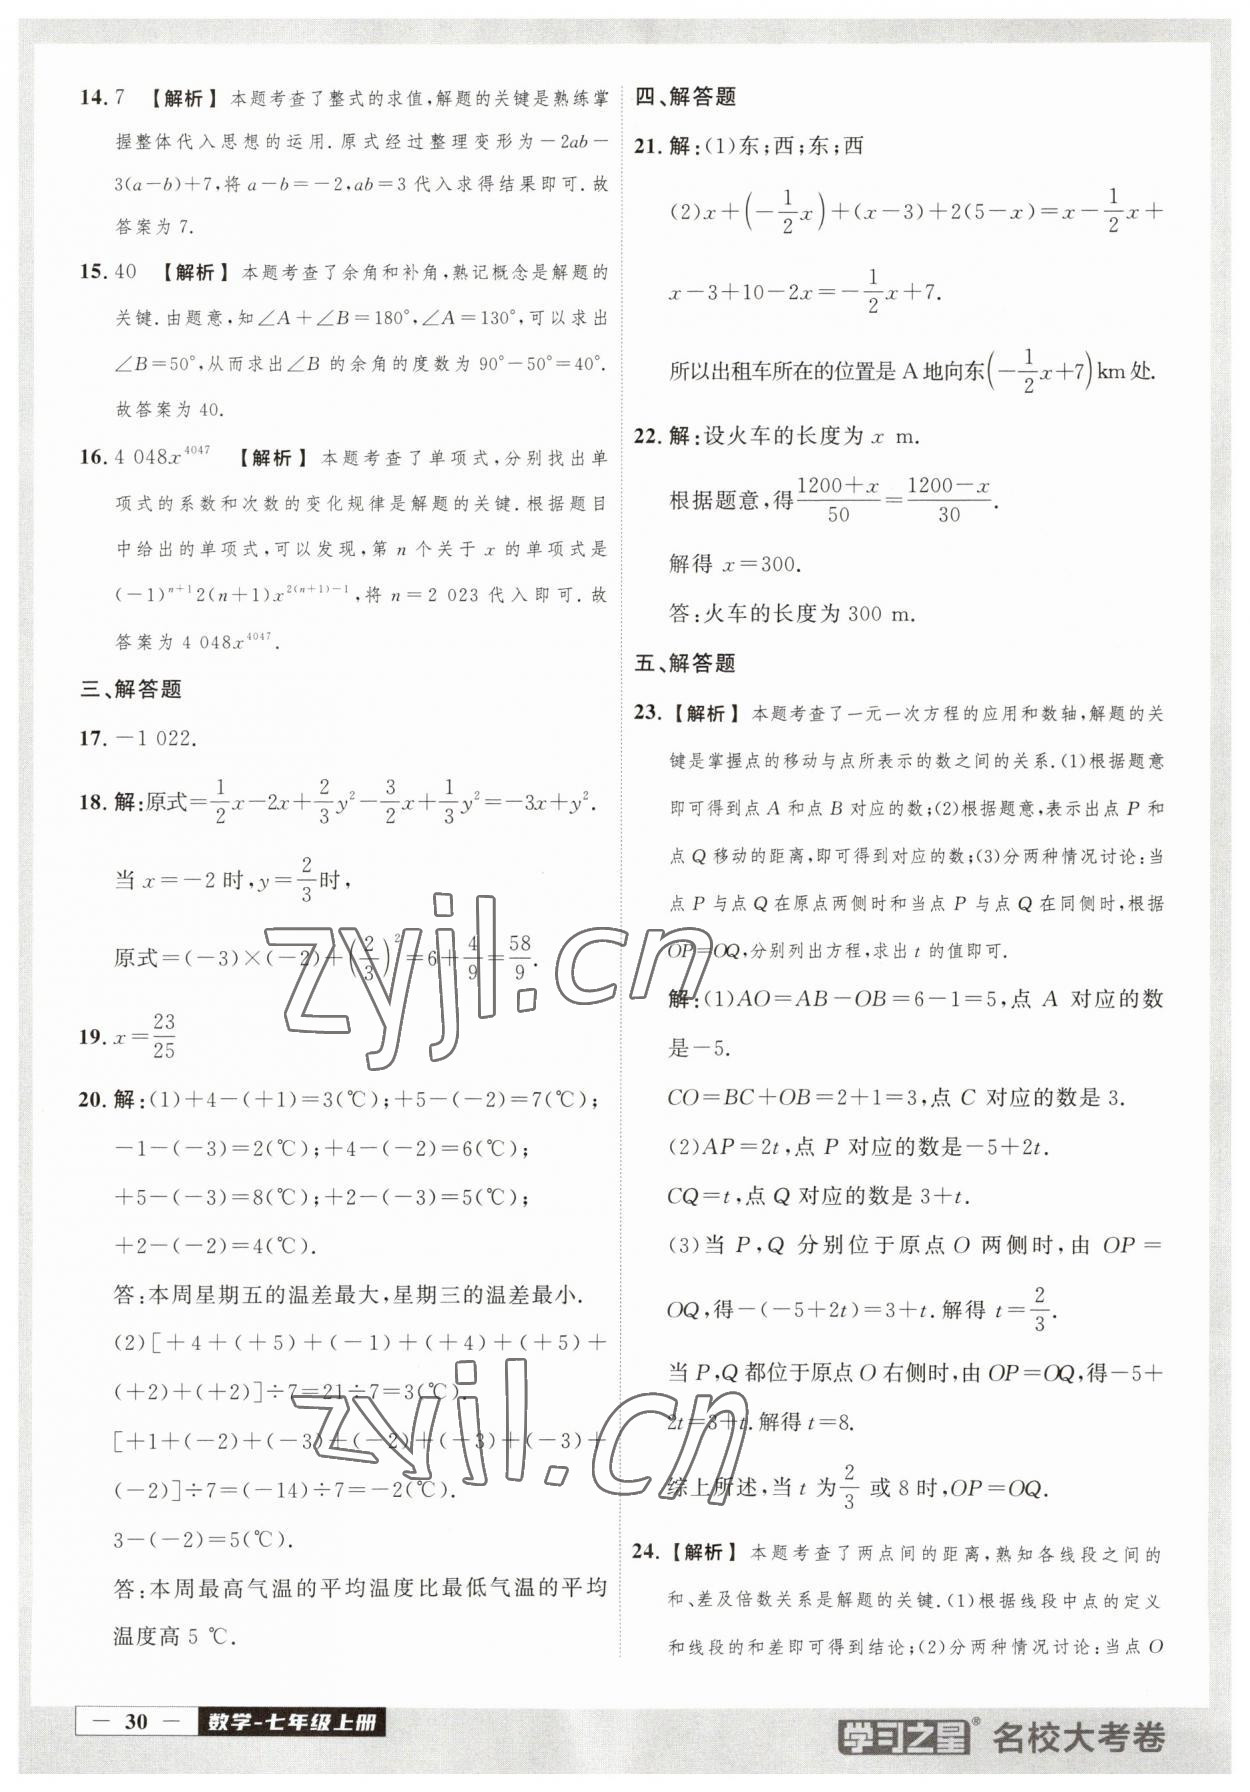 14. 7 【解析】本题考查了整式的求值,解题的关键是熟练掌
握整体代入思想的运用.原式经过整理变形为－2ab－
3(a－b)＋7,将 a－b＝－2,ab＝3 代入求得结果即可.故
答案为 7.
15. 40 【解析】本题考查了余角和补角,熟记概念是解题的
关键.由题意,知∠A＋∠B＝180°,∠A＝130°,可以求出
∠B＝50°,从而求出∠B 的余角的度数为 90°－50°＝40°.
故答案为 40.
16. 4 048x^4047 【解析】本题考查了单项式,分别找出单
项式的系数和次数的变化规律是解题的关键.根据题目
中给出的单项式,可以发现,第 n 个关于 x 的单项式是
(－1)^{n+1}2(n＋1)x^{2(n+1)－1},将 n＝2 023 代入即可.故
答案为 4 048x^4047.
三、解答题
17. －1 022.
18. 解:原式＝1/2x－2x＋2/3y²－3/2x＋1/3y²＝－3x＋y².
当 x＝－2 时,y＝2/3时,
原式＝(－3)×(－2)＋(2/3)²＝6＋4/9＝58/9.
19. x＝23/25
20. 解:(1)＋4－(＋1)＝3(℃);＋5－(－2)＝7(℃);
－1－(－3)＝2(℃);＋4－(－2)＝6(℃);
＋5－(－3)＝8(℃);＋2－(－3)＝5(℃);
＋2－(－2)＝4(℃).
答:本周星期五的温差最大,星期三的温差最小.
(2)[＋4＋(＋5)＋(－1)＋(＋4)＋(＋5)＋
(＋2)＋(＋2)]÷7＝21÷7＝3(℃).
[＋1＋(－2)＋(－3)＋(－2)＋(－3)＋(－3)＋
(－2)]÷7＝(－14)÷7＝－2(℃).
3－(－2)＝5(℃).
答:本周最高气温的平均温度比最低气温的平均
温度高 5 ℃.
四、解答题
21. 解:(1)东;西;东;西
(2)x＋(－1/2x)＋(x－3)＋2(5－x)＝x－1/2x＋
x－3＋10－2x＝－1/2x＋7.
所以出租车所在的位置是 A 地向东(－1/2x＋7)km处.
22. 解:设火车的长度为 x m.
根据题意,得(1200＋x)/50＝(1200－x)/30.
解得 x＝300.
答:火车的长度为 300 m.
五、解答题
23. 【解析】本题考查了一元一次方程的应用和数轴,解题的关
键是掌握点的移动与点所表示的数之间的关系.(1)根据题意
即可得到点 A 和点 B 对应的数;(2)根据题意,表示出点 P 和
点 Q 移动的距离,即可得到对应的数;(3)分两种情况讨论:当
点 P 与点 Q 在原点两侧时和当点 P 与点 Q 在同侧时,根据
OP＝OQ,分别列出方程,求出 t 的值即可.
解:(1)AO＝AB－OB＝6－1＝5,点 A 对应的数
是－5.
CO＝BC＋OB＝2＋1＝3,点 C 对应的数是 3.
(2)AP＝2t,点 P 对应的数是－5＋2t.
CQ＝t,点 Q 对应的数是 3＋t.
(3)当 P,Q 分别位于原点 O 两侧时,由 OP＝
OQ,得－(－5＋2t)＝3＋t.解得 t＝2/3.
当 P,Q 都位于原点 O 右侧时,由 OP＝OQ,得－5＋
2t＝3＋t.解得 t＝8.
综上所述,当 t 为 2/3 或 8 时,OP＝OQ.
24. 【解析】本题考查了两点间的距离,熟知各线段之间的
和、差及倍数关系是解题的关键.(1)根据线段中点的定义
和线段的和差即可得到结论;(2)分两种情况讨论:当点 O
zyjl.cn
zyjl.cn
— 30 — 数学-七年级上册
学习之星® 名校大考卷